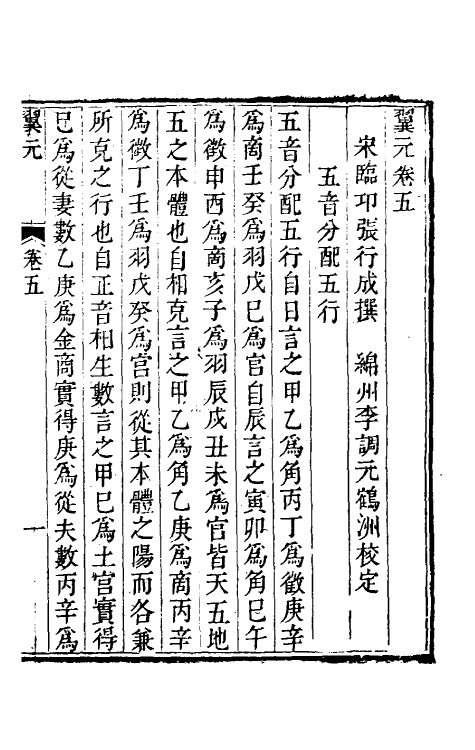 翼元卷五
宋臨卭張行成撰　綿州李調元鶴洲校定
五音分配五行
五音分配五行自日言之甲乙爲角丙丁爲徵庚辛
爲商壬癸爲羽戊巳爲官自辰言之寅卯爲角巳午
爲徵申酉爲商亥子爲羽辰戍丑未爲官皆天五地
五之本體也自相克言之甲乙爲角乙庚爲商丙辛
爲徵丁壬爲羽戊癸爲官則從其本體之陽而各兼
所克之行也自正音相生數言之甲巳爲土宮實得
巳爲從妻數乙庚爲金商實得庚爲從夫數丙辛爲
翼元
卷五
一